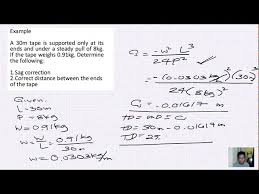 Example
A 30m tape is supported only at its
ends and under a steady pull of 8kg.
If the tape weighs 0.91kg. Determine
the following:
1.Sag correction
2.Correct distance between the ends
of the tape
Given:
L=30m
P=8kg
W=0.91kg
w=W/L=0.91kg/30m
w=0.0303kg/m
C=-w²L³/24P²
=-(0.0303kg/m)²(30m)³/24(8kg)²
C=-0.01617m
TD=MD-C
TD=30m-0.01617m
TD=29.